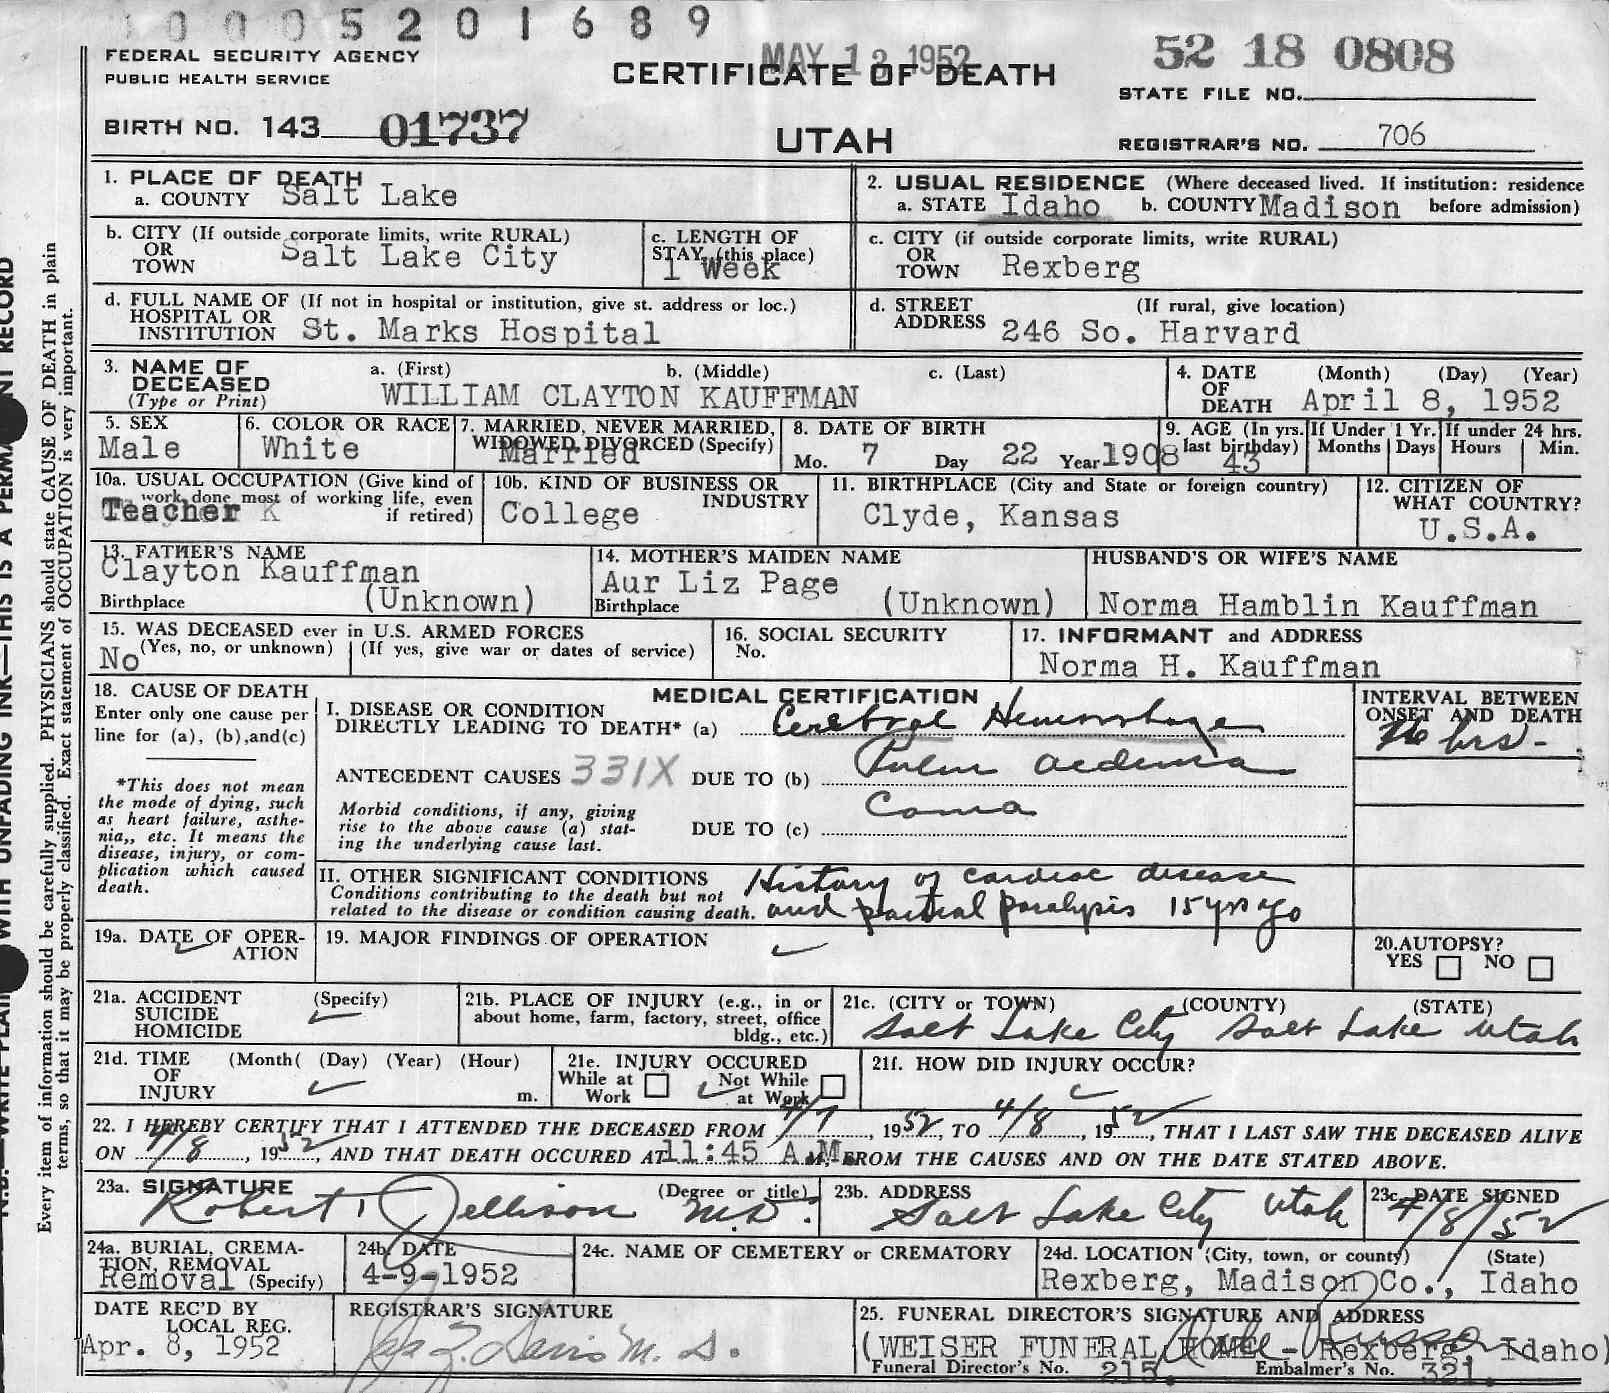 0005201689
MAY 12 1952
52 18 0808
FEDERAL SECURITY AGENCY
PUBLIC HEALTH SERVICE
CERTIFICATE OF DEATH
STATE FILE NO.
BIRTH NO. 143 01737
UTAH
REGISTRAR'S NO. 706
1. PLACE OF DEATH
a. COUNTY Salt Lake
2. USUAL RESIDENCE (Where deceased lived. If institution: residence before admission)
a. STATE Idaho b. COUNTY Madison
b. CITY (If outside corporate limits, write RURAL) OR TOWN Salt Lake City
c. LENGTH OF STAY (this place) 1 Week
c. CITY (if outside corporate limits, write RURAL) OR TOWN Rexberg
d. FULL NAME OF (If not in hospital or institution, give st. address or loc.) HOSPITAL OR INSTITUTION St. Marks Hospital
d. STREET ADDRESS (If rural, give location) 246 So. Harvard
3. NAME OF DECEASED (Type or Print) a. (First) b. (Middle) c. (Last)
WILLIAM CLAYTON KAUFFMAN
4. DATE OF DEATH (Month) (Day) (Year) April 8, 1952
5. SEX Male
6. COLOR OR RACE White
7. MARRIED, NEVER MARRIED, WIDOWED, DIVORCED (Specify) Married
8. DATE OF BIRTH Mo. 7 Day 22 Year 1908
9. AGE (In yrs. last birthday) 43
If Under 1 Yr. Months Days
If under 24 hrs. Hours Min.
10a. USUAL OCCUPATION (Give kind of work done most of working life, even if retired) Teacher
10b. KIND OF BUSINESS OR INDUSTRY College
11. BIRTHPLACE (City and State or foreign country) Clyde, Kansas
12. CITIZEN OF WHAT COUNTRY? U.S.A.
13. FATHER'S NAME Clayton Kauffman
Birthplace (Unknown)
14. MOTHER'S MAIDEN NAME Aur Liz Page
Birthplace (Unknown)
HUSBAND'S OR WIFE'S NAME Norma Hamblin Kauffman
15. WAS DECEASED ever in U.S. ARMED FORCES
(Yes, no, or unknown) (If yes, give war or dates of service)
No
16. SOCIAL SECURITY No.
17. INFORMANT and ADDRESS
Norma H. Kauffman
18. CAUSE OF DEATH
Enter only one cause per line for (a), (b), and (c)
MEDICAL CERTIFICATION
INTERVAL BETWEEN ONSET AND DEATH
I. DISEASE OR CONDITION DIRECTLY LEADING TO DEATH* (a) Cerebral Hemorrhage
hrs-
ANTECEDENT CAUSES 331X DUE TO (b) Pulm oedema
Morbid conditions, if any, giving rise to the above cause (a) stating the underlying cause last.
DUE TO (c) Coma
*This does not mean
the mode of dying, such
as heart failure, asthe-
nia,, etc. It means the
disease, injury, or com-
plication which caused
death.
II. OTHER SIGNIFICANT CONDITIONS
Conditions contributing to the death but not
related to the disease or condition causing death.
History of cardiac disease
and partial paralysis 15 yrs ago
19a. DATE OF OPERATION
19. MAJOR FINDINGS OF OPERATION
20. AUTOPSY? YES NO
21a. ACCIDENT SUICIDE HOMICIDE (Specify)
21b. PLACE OF INJURY (e.g., in or about home, farm, factory, street, office bldg., etc.)
21c. (CITY or TOWN) (COUNTY) (STATE)
Salt Lake City Salt Lake Utah
21d. TIME OF INJURY (Month( (Day) (Year) (Hour) m.
21e. INJURY OCCURED While at Work Not While at Work
21f. HOW DID INJURY OCCUR?
22. I HEREBY CERTIFY THAT I ATTENDED THE DECEASED FROM 4/7, 1952, TO 4/8, 1952, THAT I LAST SAW THE DECEASED ALIVE
ON 4/8, 1952, AND THAT DEATH OCCURED AT 11:45 A.M. FROM THE CAUSES AND ON THE DATE STATED ABOVE.
23a. SIGNATURE (Degree or title)
Robert Jellison M.D.
23b. ADDRESS Salt Lake City Utah
23c. DATE SIGNED 4/8/52
24a. BURIAL, CREMATION, REMOVAL (Specify) Removal
24b. DATE 4-9-1952
24c. NAME OF CEMETERY or CREMATORY
24d. LOCATION (City, town, or county) (State)
Rexberg, Madison Co., Idaho
DATE REC'D BY LOCAL REG. Apr. 8, 1952
REGISTRAR'S SIGNATURE
Davis M.D.
25. FUNERAL DIRECTOR'S SIGNATURE AND ADDRESS
(WEISER FUNERAL HOME - Rexberg Idaho)
Funeral Director's No. 215. Embalmer's No. 321.
Every item of information should be carefully supplied. PHYSICIANS should state CAUSE OF DEATH in plain
terms, so that it may be properly classified. Exact statement of OCCUPATION is very important.
WITH UNFADING INK—THIS IS A RECORD